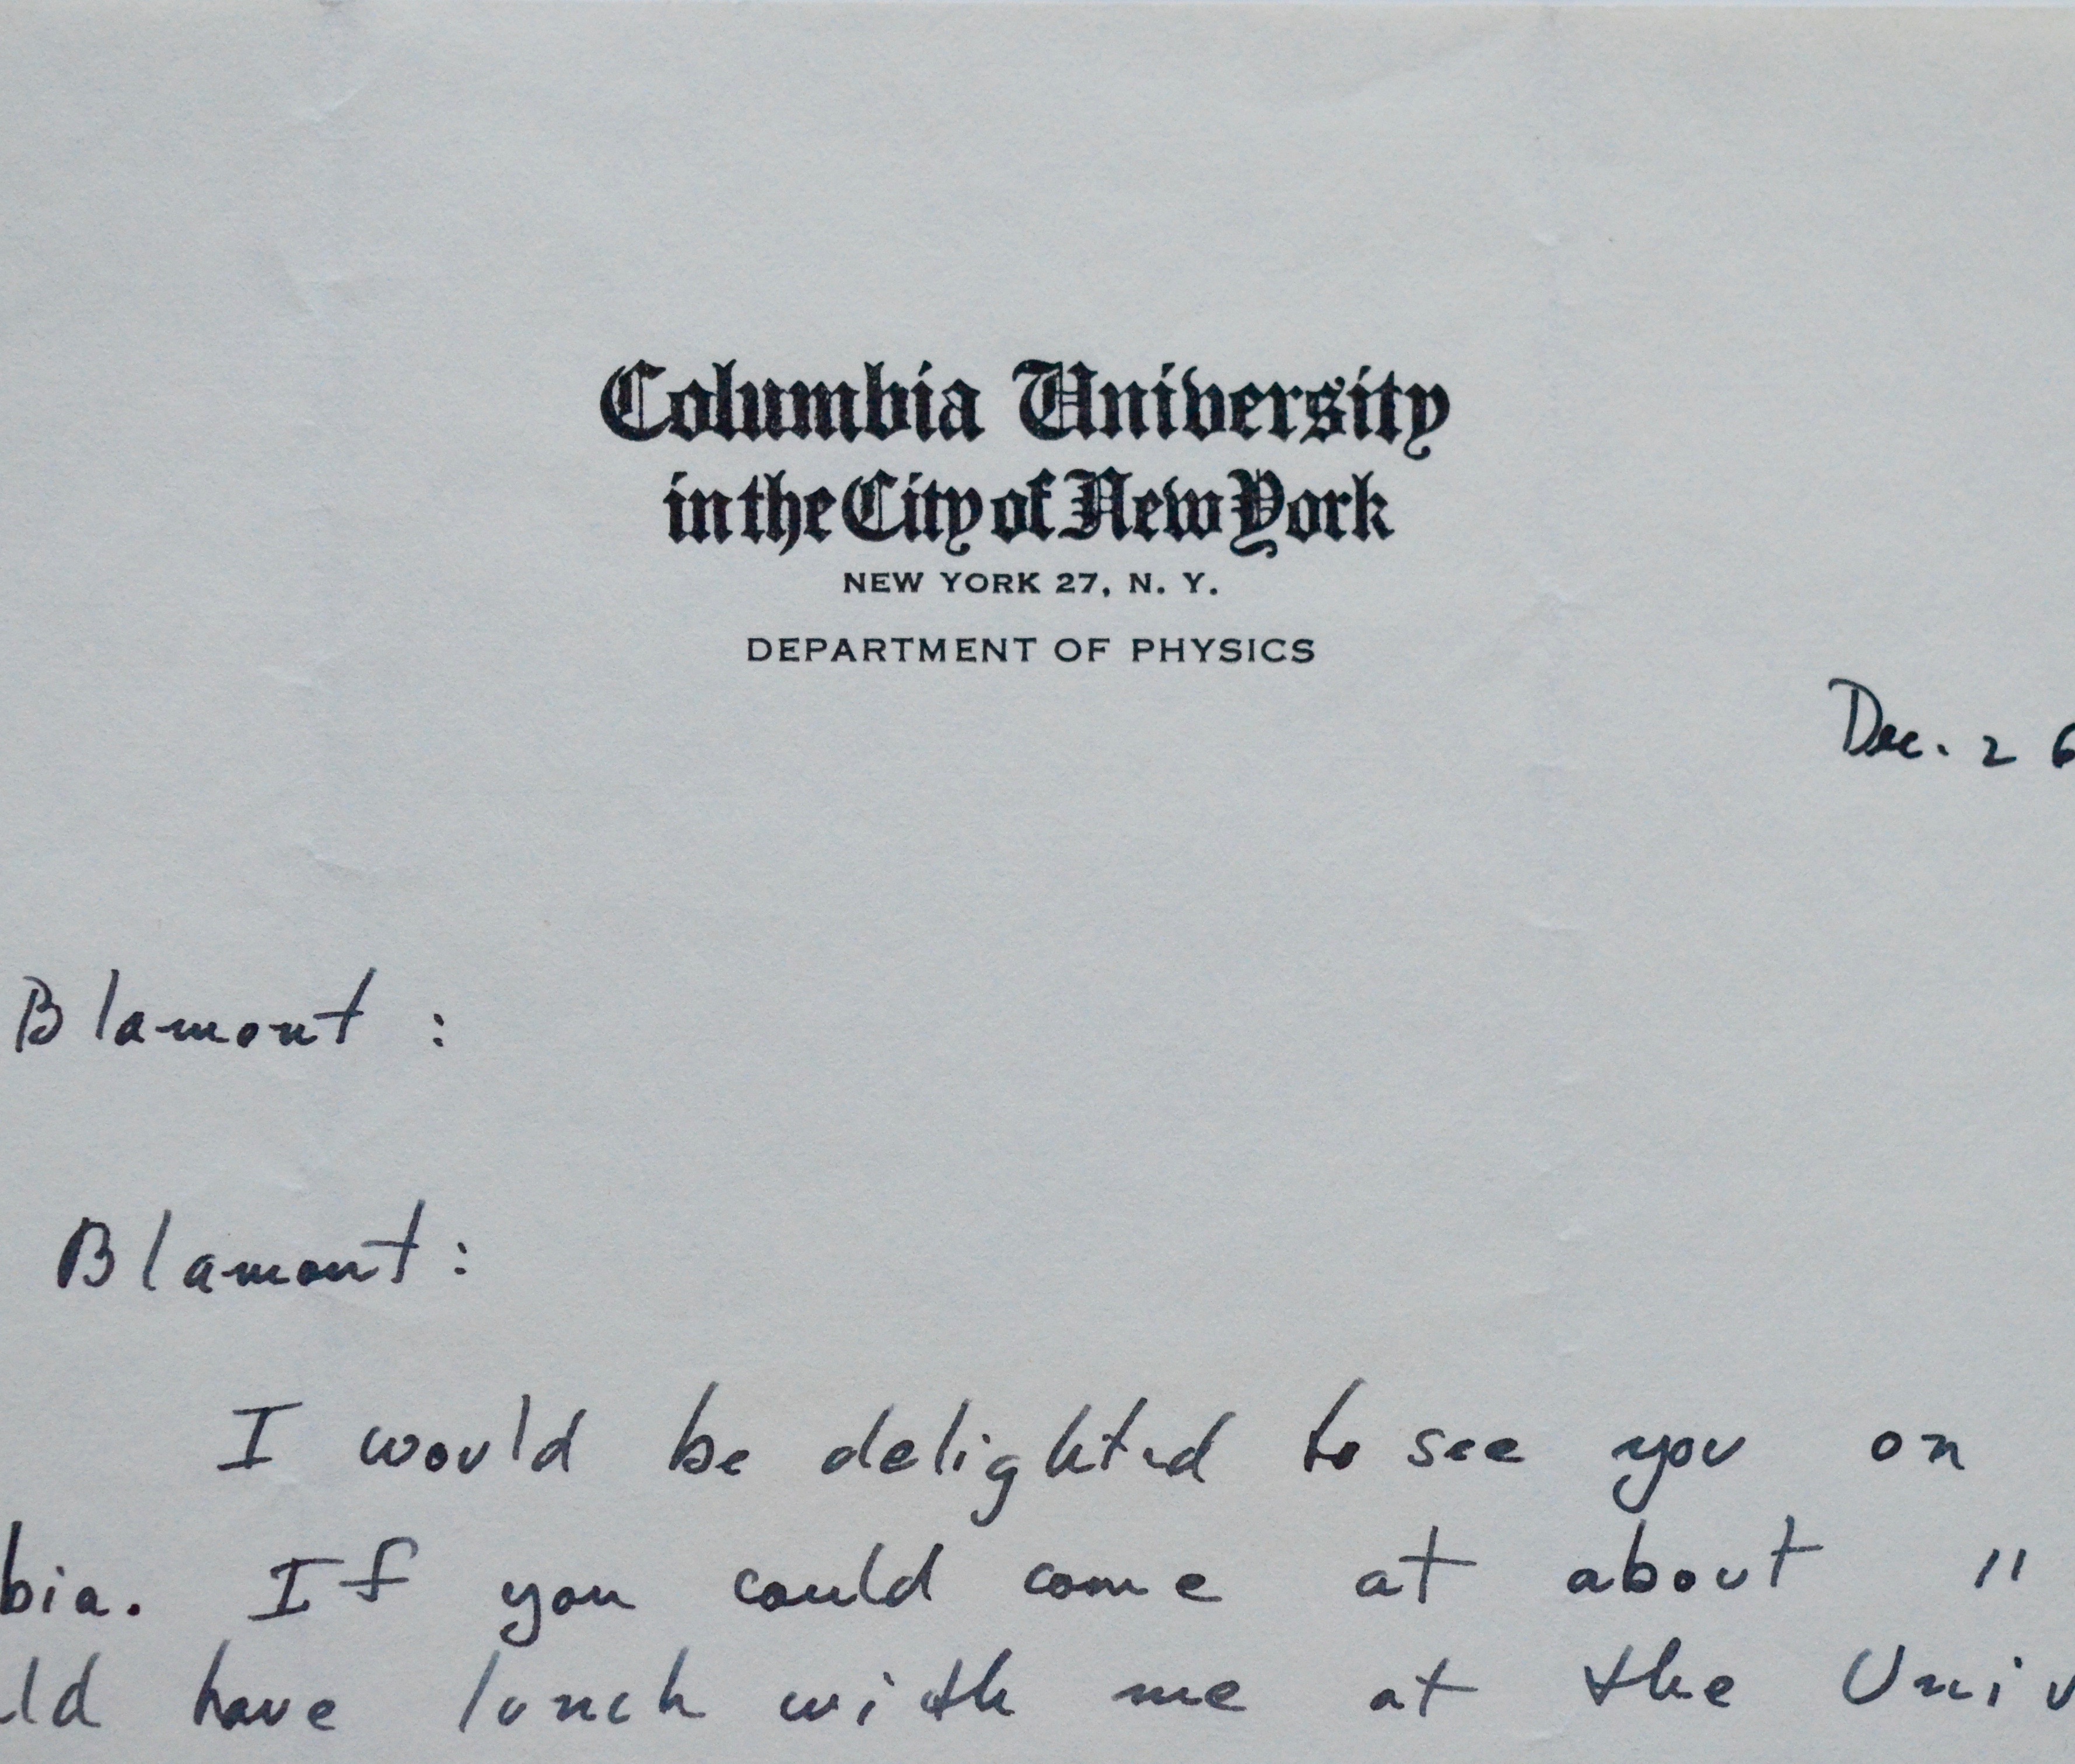 Columbia University
in the City of New York
NEW YORK 27, N. Y.
DEPARTMENT OF PHYSICS
Dec. 26
Blamont :
Blamont :
I would be delighted to see you on
bia. If you could come at about 11
ld have lunch with me at the Univ